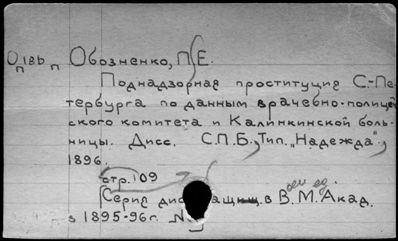 О18b п Обозненко, П.Е.
п
Поднадзорная проституция С-Пе-
тербурга по данным врачебно-полицей-
ского комитета и Калинкинской боль-
ницы. Дисс. С.П.Б., Тип. „Надежда",
1896.
стр. 109
Серия в В.М.Акад.
в 1895-96г. N